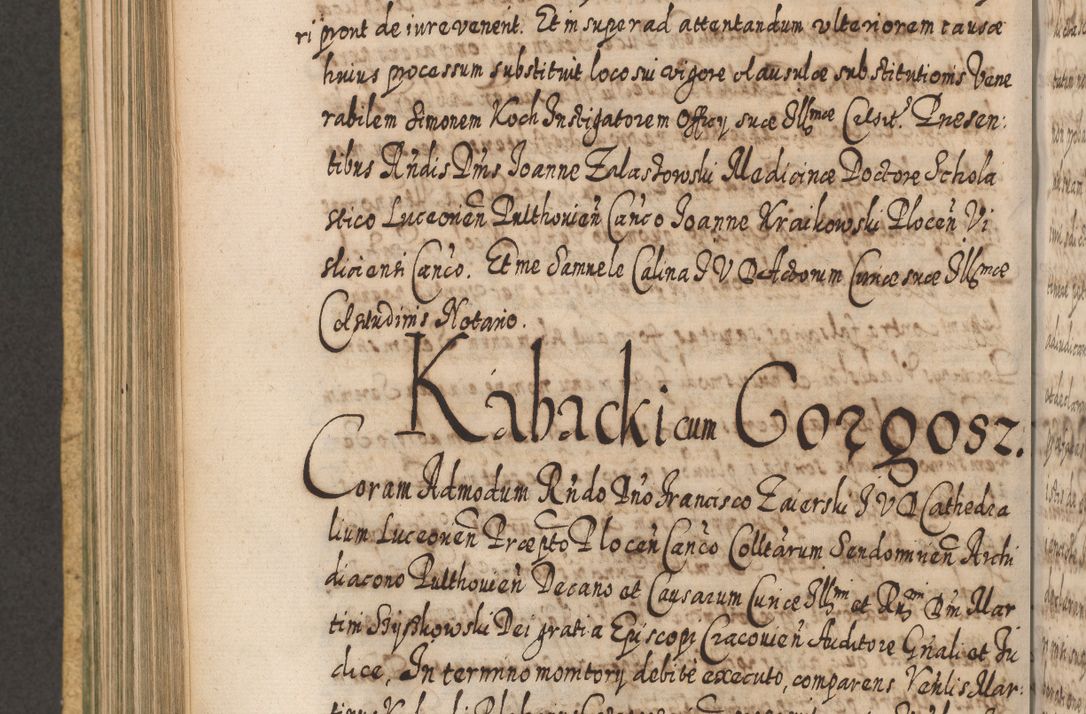 ri pront de iure venerit. Et in super ad attentandum vlteriorem causæ
huius processum substituit loco sui vigore clausulæ substitutionis Vene
rabilem Simonem Koch Instigatorem Officy suæ Illmæ Celsit. Presen:
tibus Rndis Dnis Joanne Zalastowski Medicinæ Doctore Schola
stico Luceorien Pulthovien Canco Joanne Kraikowski Plocen Vi
sliciensi Canco. Et me Samuele Calina J V D Actorum Curiæ suæ Illmæ
Celsitudinis Notario.
Kabacki cum Gorgosz.
Coram Admodum Rndo Dno Francisco Zaierski J V D Cathedra
lium Luceorien Præpto Plocen Canco Colltarum Sendomirien Archi
diacono Pulthovien Decano et Causarum Curiæ Illmi et Rndmi Dni Mar
tini Szyszkowski Dei gratia Episcopi Cracovien Auditore Gnali et Ju
dice, In termino monitory debite executo, comparens Venlis Mar: